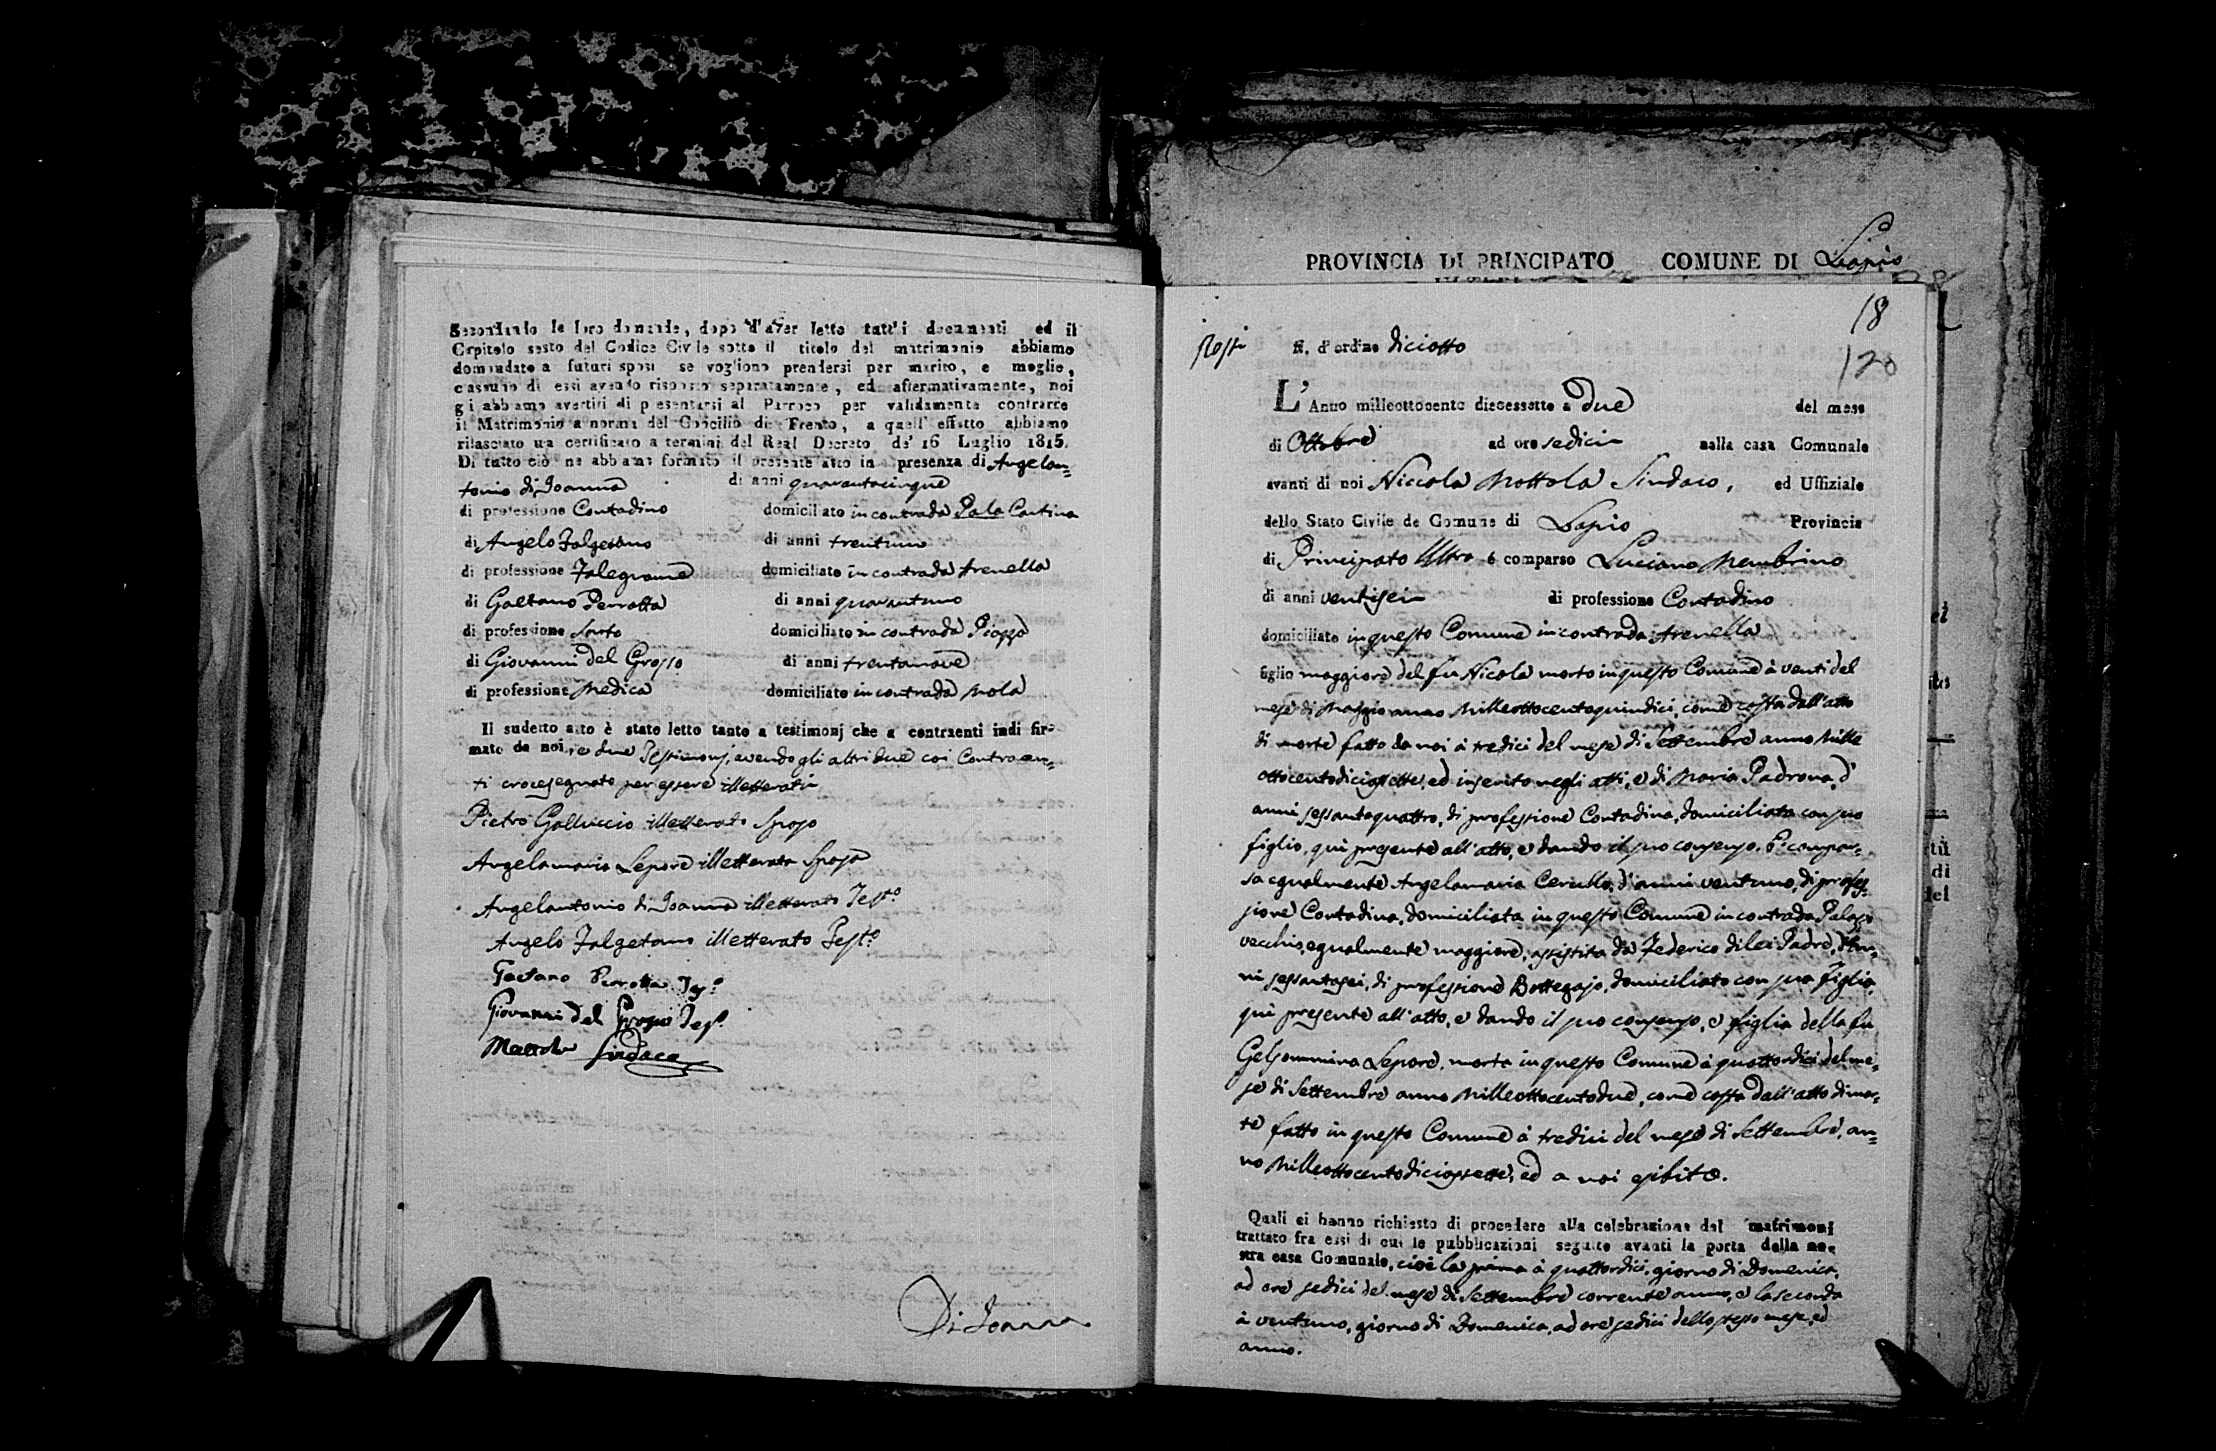 Secondando le loro domande, dopo d'aver letto tutt'i documenti ed il
Capitolo sesto del Codice Civile sotto il titolo del matrimonio abbiamo
domandato a futuri sposi se vogliono prendersi per marito, e moglie,
ciascuno di essi avendo risposto separatamente, ed affermativamente, noi
gli abbiamo avertiti di presentarsi al Parroco per validamente contrarre
il Matrimonio a norma del Concilio di Trento, a quell' effetto abbiamo
rilasciato un certificato a termini del Real Decreto de' 16 Luglio 1815.
Di tutto ciò ne abbiamo formato il presente atto in presenza di Angelan=
tonio di Joanna di anni quarantacinque
di professione Contadino domiciliato in contrada Pala Cantina
di Angelo Falgetano di anni trentuno
di professione Falegname domiciliato in contrada Arenella
di Gaetano Perrotta di anni quarantuno
di professione Sarto domiciliato in contrada Piazza
di Giovanni del Grosso di anni trentanove
di professione Medico domiciliato in contrada Mola
Il sudetto atto è stato letto tanto a testimonj che a contraenti indi fir=
mato da noi, e due Testimonj, avendo gli altri due coi Contraen=
ti crocesegnato per essere illetterati
Pietro Galluccio illetterato Sposo
Angelamaria Lepore illetterata Sposa
Angelantonio di Joanna illetterato Test.o
Angelo Falgetano illetterato Test.o
Gaetano Perrotta Tes.o
Giovanni del Grosso Tes.o
Mottola Sindaco
Di Joanna
PROVINCIA DI PRINCIPATO COMUNE DI Lapio
18
N. d'ordine diciotto
120
L'Anno milleottocento diecessette a due del mese
di Ottobre ad ore sedici nella casa Comunale
avanti di noi Niccola Mottola Sindaco, ed Uffiziale
dello Stato Civile de Comune di Lapio Provincia
di Principato Ultra è comparso Luciano Membrino
di anni ventisei di professione Contadino
domiciliato in questo Comune in contrada Arenella
figlio maggiore del fu Nicola morto in questo Comune à venti del
mese di Maggio anno Milleottocentoquindici, come costa dall'atto
di morte fatto da noi à tredici del mese di Settembre anno Mille
ottocentodiciassette, ed inserito negli atti, e di Maria Padrona, d'
anni sessantaquattro, di professione Contadina, domiciliata con suo
figlio, quì presente all'atto, e dando il suo consenso. È compar=
sa egualmente Angelamaria Cerullo, d'anni ventuno, di profes=
sione Contadina, domiciliata in questo Comune in contrada Palazzo
vecchio, egualmente maggiore, assistita da Federico di lei Padre, d'an=
ni sessantasei, di professione Bottegajo, domiciliato con sua figlia,
quì presente all'atto, e dando il suo consenso, e figlia della fu
Gelsommina Lepore, morta in questo Comune à quattordici del me=
se di Settembre anno Milleottocentodue, come costa dall'atto di mor=
te fatto in questo Comune à tredici del mese di Settembre, an=
no Milleottocentodiciassette, ed a noi esibito.
Quali ci hanno richiesto di procedere alla celebrazione del matrimonj
trattato fra essi di cui le pubblicazioni seguite avanti la porta della no=
stra casa Comunale, cioè la prima à quattordici, giorno di Domenica,
ad ore sedici del mese di Settembre corrente anno, e la seconda
à ventuno, giorno di Domenica, ad ore sedici dello stesso mese, ed
anno.